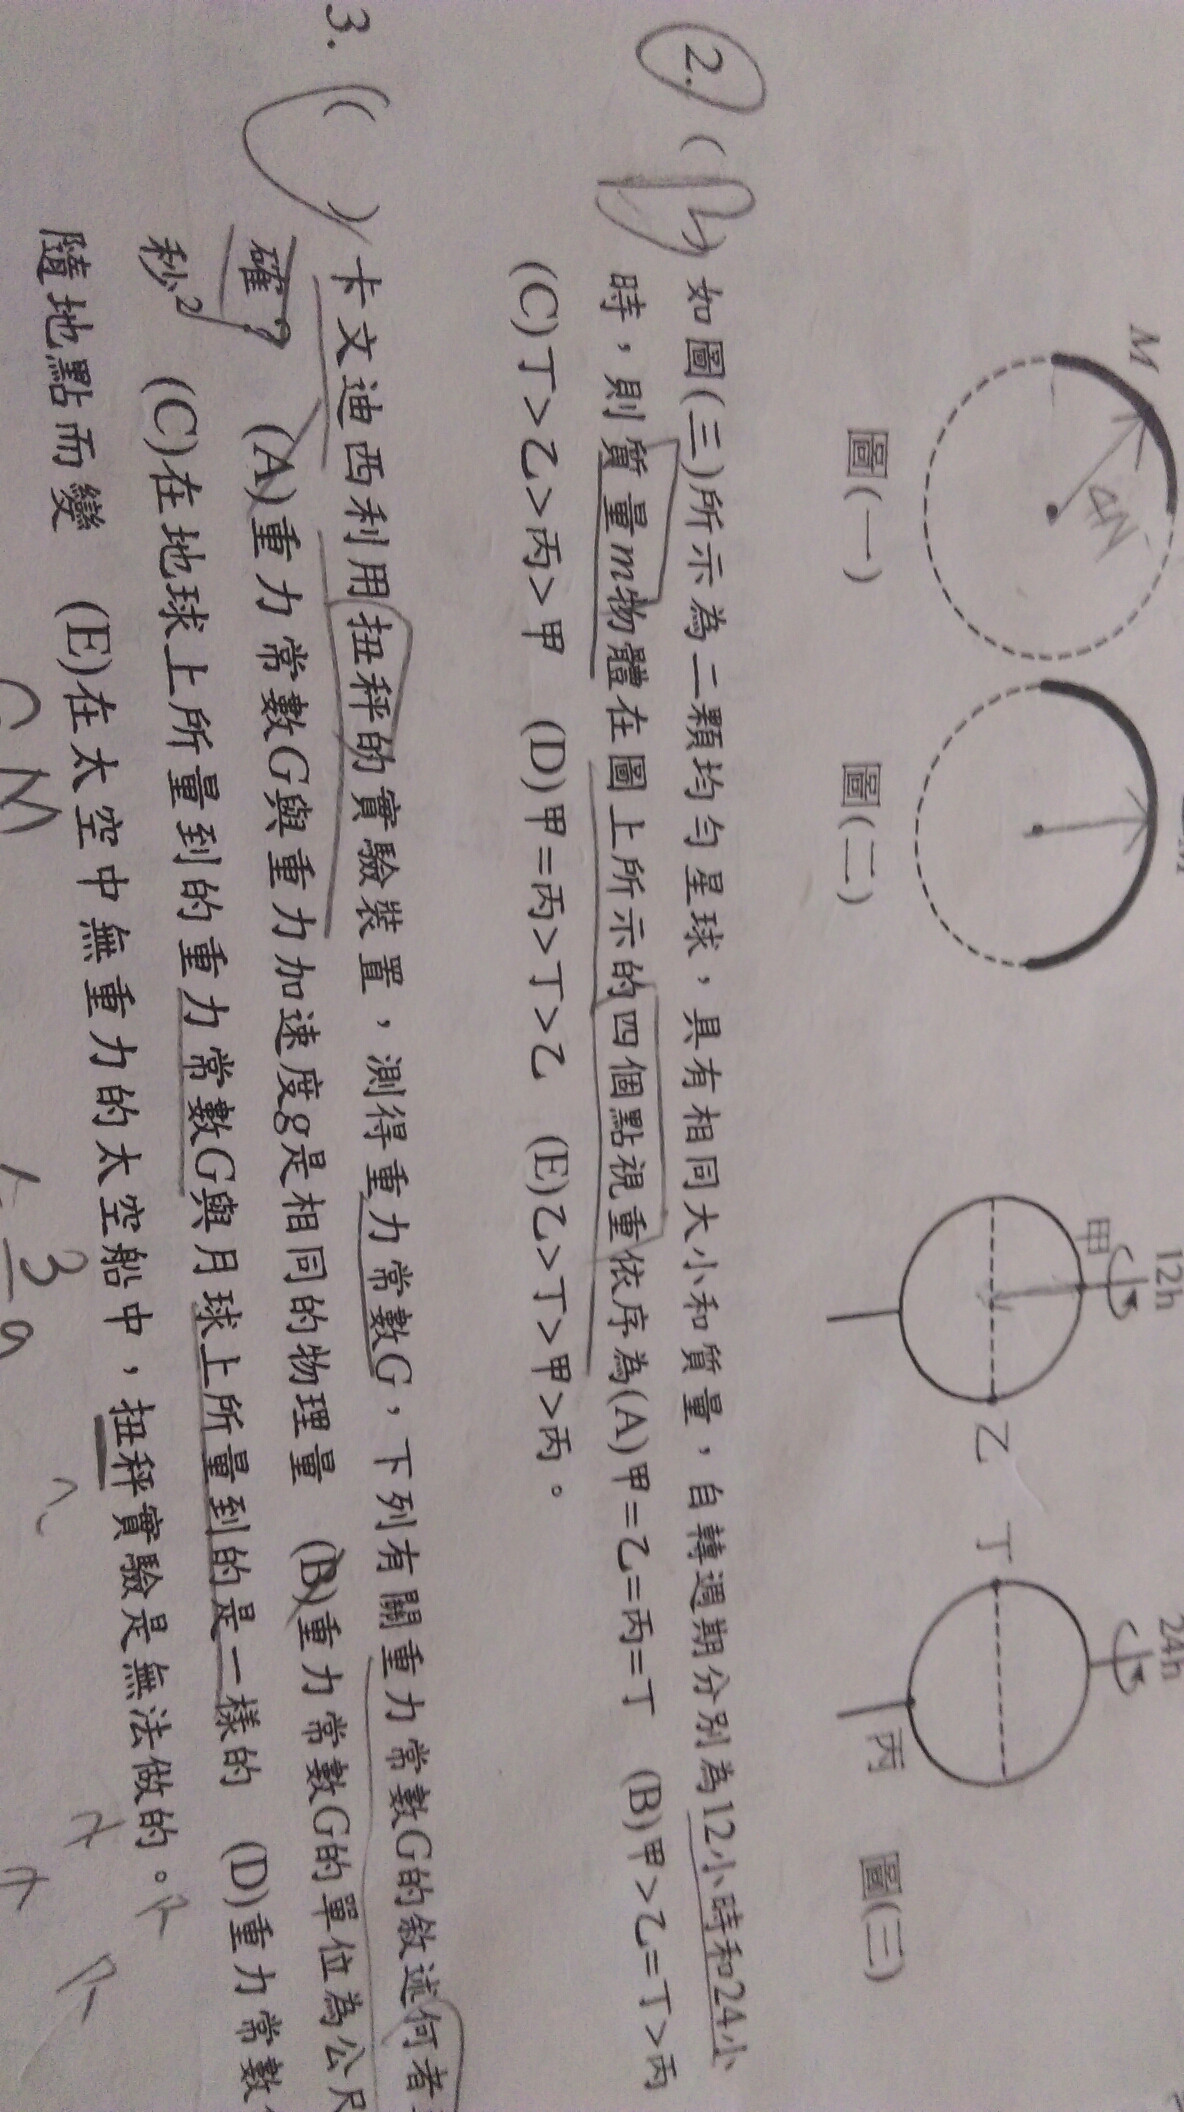 M
4N
圖(一)
圖(二)
12h
甲
乙
24h
丁
丙
圖(三)
2. ( ) 如圖(三)所示為二顆均勻星球，具有相同大小和質量，自轉週期分別為12小時和24小
時，則質量m物體在圖上所示的四個點視重依序為(A)甲=乙=丙=丁 (B)甲>乙=丁>丙
(C)丁>乙>丙>甲 (D)甲=丙>丁>乙 (E)乙>丁>甲>丙。
3. ( ) 卡文迪西利用扭秤的實驗裝置，測得重力常數G，下列有關重力常數G的敘述何者
確？ (A)重力常數G與重力加速度g是相同的物理量 (B)重力常數G的單位為公尺
秒² (C)在地球上所量到的重力常數G與月球上所量到的是一樣的 (D)重力常數
隨地點而變 (E)在太空中無重力的太空船中，扭秤實驗是無法做的。
GM